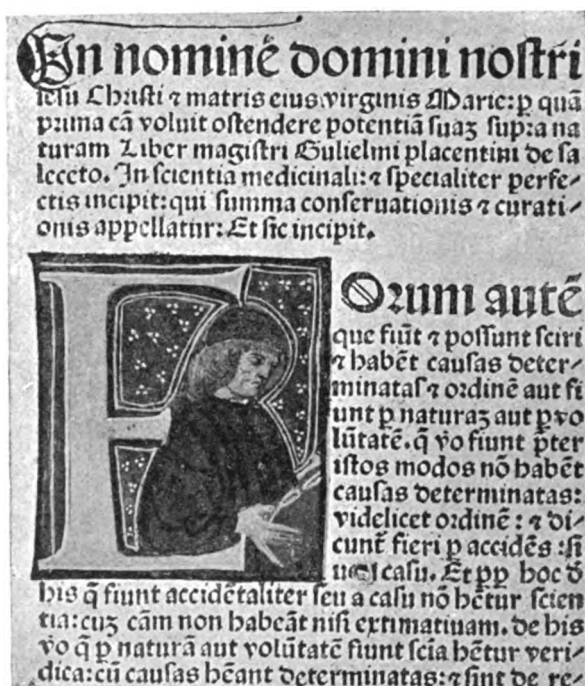 In nominē domini noſtri
ieſu Chriſti ⁊ matris eius virginis Marie: ꝑ quā
prima cā voluit oſtendere potentiā ſuaꝫ ſupra na
turam Liber magiſtri Gulielmi placentini de ſa
liceto. In ſcientia medicinali: ⁊ ſpecialiter perfe-
ctis incipit: qui ſumma conſeruationis ⁊ curati-
onis appellatur: Et ſic incipit.
EOrum autē
que fiūt ⁊ poſſunt ſciri
⁊ habēt cauſas deter-
minatas ⁊ ordinē aut fi
unt ꝑ naturaꝫ aut ꝑ vo
lūtatē. q̄ vo fiunt p̄ter
iſtos modos nō habēt
cauſas determinatas:
videlicet ordinē: ⁊ di
cunt̄ fieri ꝑ accidēs: ſi
caſu. Et ꝓp hoc đ
his q̄ fiunt accidētaliter ſeu a caſu nō hētur ſcien
tia: cuꝫ cām non habeāt niſi extimatiuam. de his
vo q̄ ꝑ naturā aut volūtatē fiunt ſcīa hētur veri-
dica: cū cauſas hēant determinatas: ⁊ ſint de re-